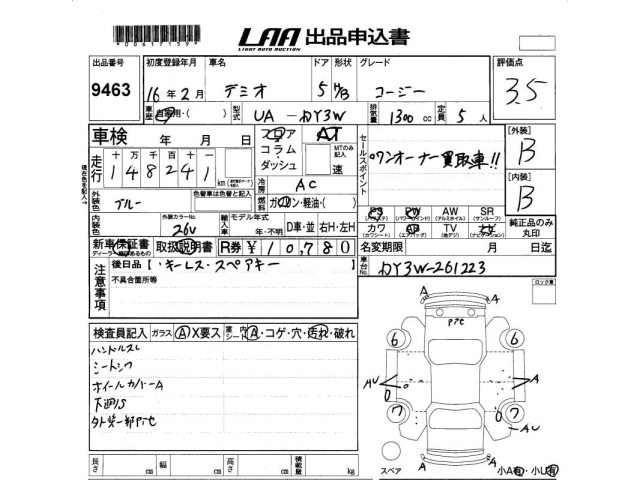 *00617159*
LAA LIGHT AUTO AUCTION 出品申込書
出品番号 初度登録年月 車名 ドア 形状 グレード 評価点
9463 16年2月 デミオ 5 H/B コージー 3.5
車歴 自家用・( ) 型式 UA-DY3W 排気量 1300 cc 定員 5人
車検 年 月 日 フロア コラム・ダッシュ AT MTのみ記入 速
走行 十万千百十一 148241 km
冷房 AC
セールスポイント ワンオーナー買取車!!
[外装] B
[内装] B
外装色 ブルー 色替車は色替と記入 燃料 ガソリン・軽油・( )
内装色 外装カラーNo. 26V 輸入車 モデル年式 年・不明 D車・並 右H・左H
PS PW (パワーウインドウ) AW (アルミホイル) SR (サンルーフ)
カワ (カワシート) AB (エアバッグ) TV (地デジ) ナビ (ナビゲーション)
純正品のみ丸印
新車保証書 取扱説明書 R券 ¥10,780 名変期限 月 日迄
注意事項 後日品【・キーレス・スペアキー 】
不具合箇所等
車台No. DY3W-261223
ロック車
検査員記入 ガラス A X要ス 室内シート A・コゲ・穴・汚れ・破れ
ハンドルスレ
シートシワ
ホイールカバーA
下廻りS
外装一部P
A A
6 6
AU A
7 7
AU
A A
長さ cm 幅 cm 高さ cm 積載量 kg
スペア 小A有・小U有